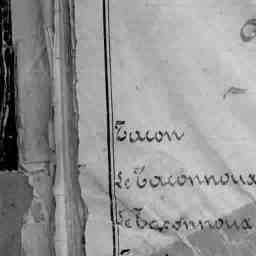 Tacon
Le Taconnoux
Le Taconnoux